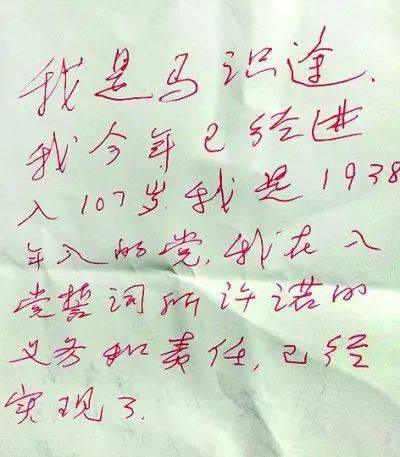 我是马识途.
我今年已经进
入107岁.我是1938
年入的党.我在入
党誓词所许诺的
义务和责任,已经
实现了.